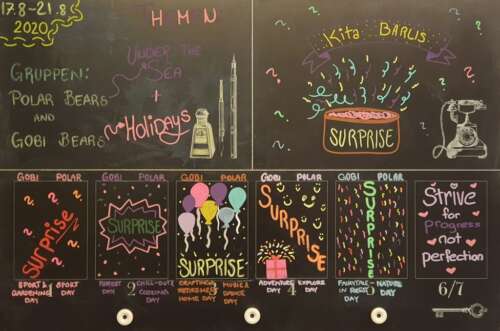 17.8-21.8
2020
HMN
GRUPPEN:
POLAR BEARS
AND
GOBI BEARS
UNDER THE
SEA
+
Holidays
Kita BÄRLIS
SURPRISE
GOBI POLAR
Surprise
SPORT & GARDENING DAY
SPORT DAY
1
GOBI POLAR
SURPRISE
FOREST DAY
CHILL-OUT & COOKING DAY
2
GOBI POLAR
SURPRISE
DAY
MUSIC & DANCE DAY
3
GOBI POLAR
SURPRISE
ADVENTURE DAY
EXPLORE DAY
4
GOBI POLAR
SURPRISE
FAIRYTALE IN FOREST DAY
NATURE DAY
5
Strive
for
progress
not
perfection
6/7